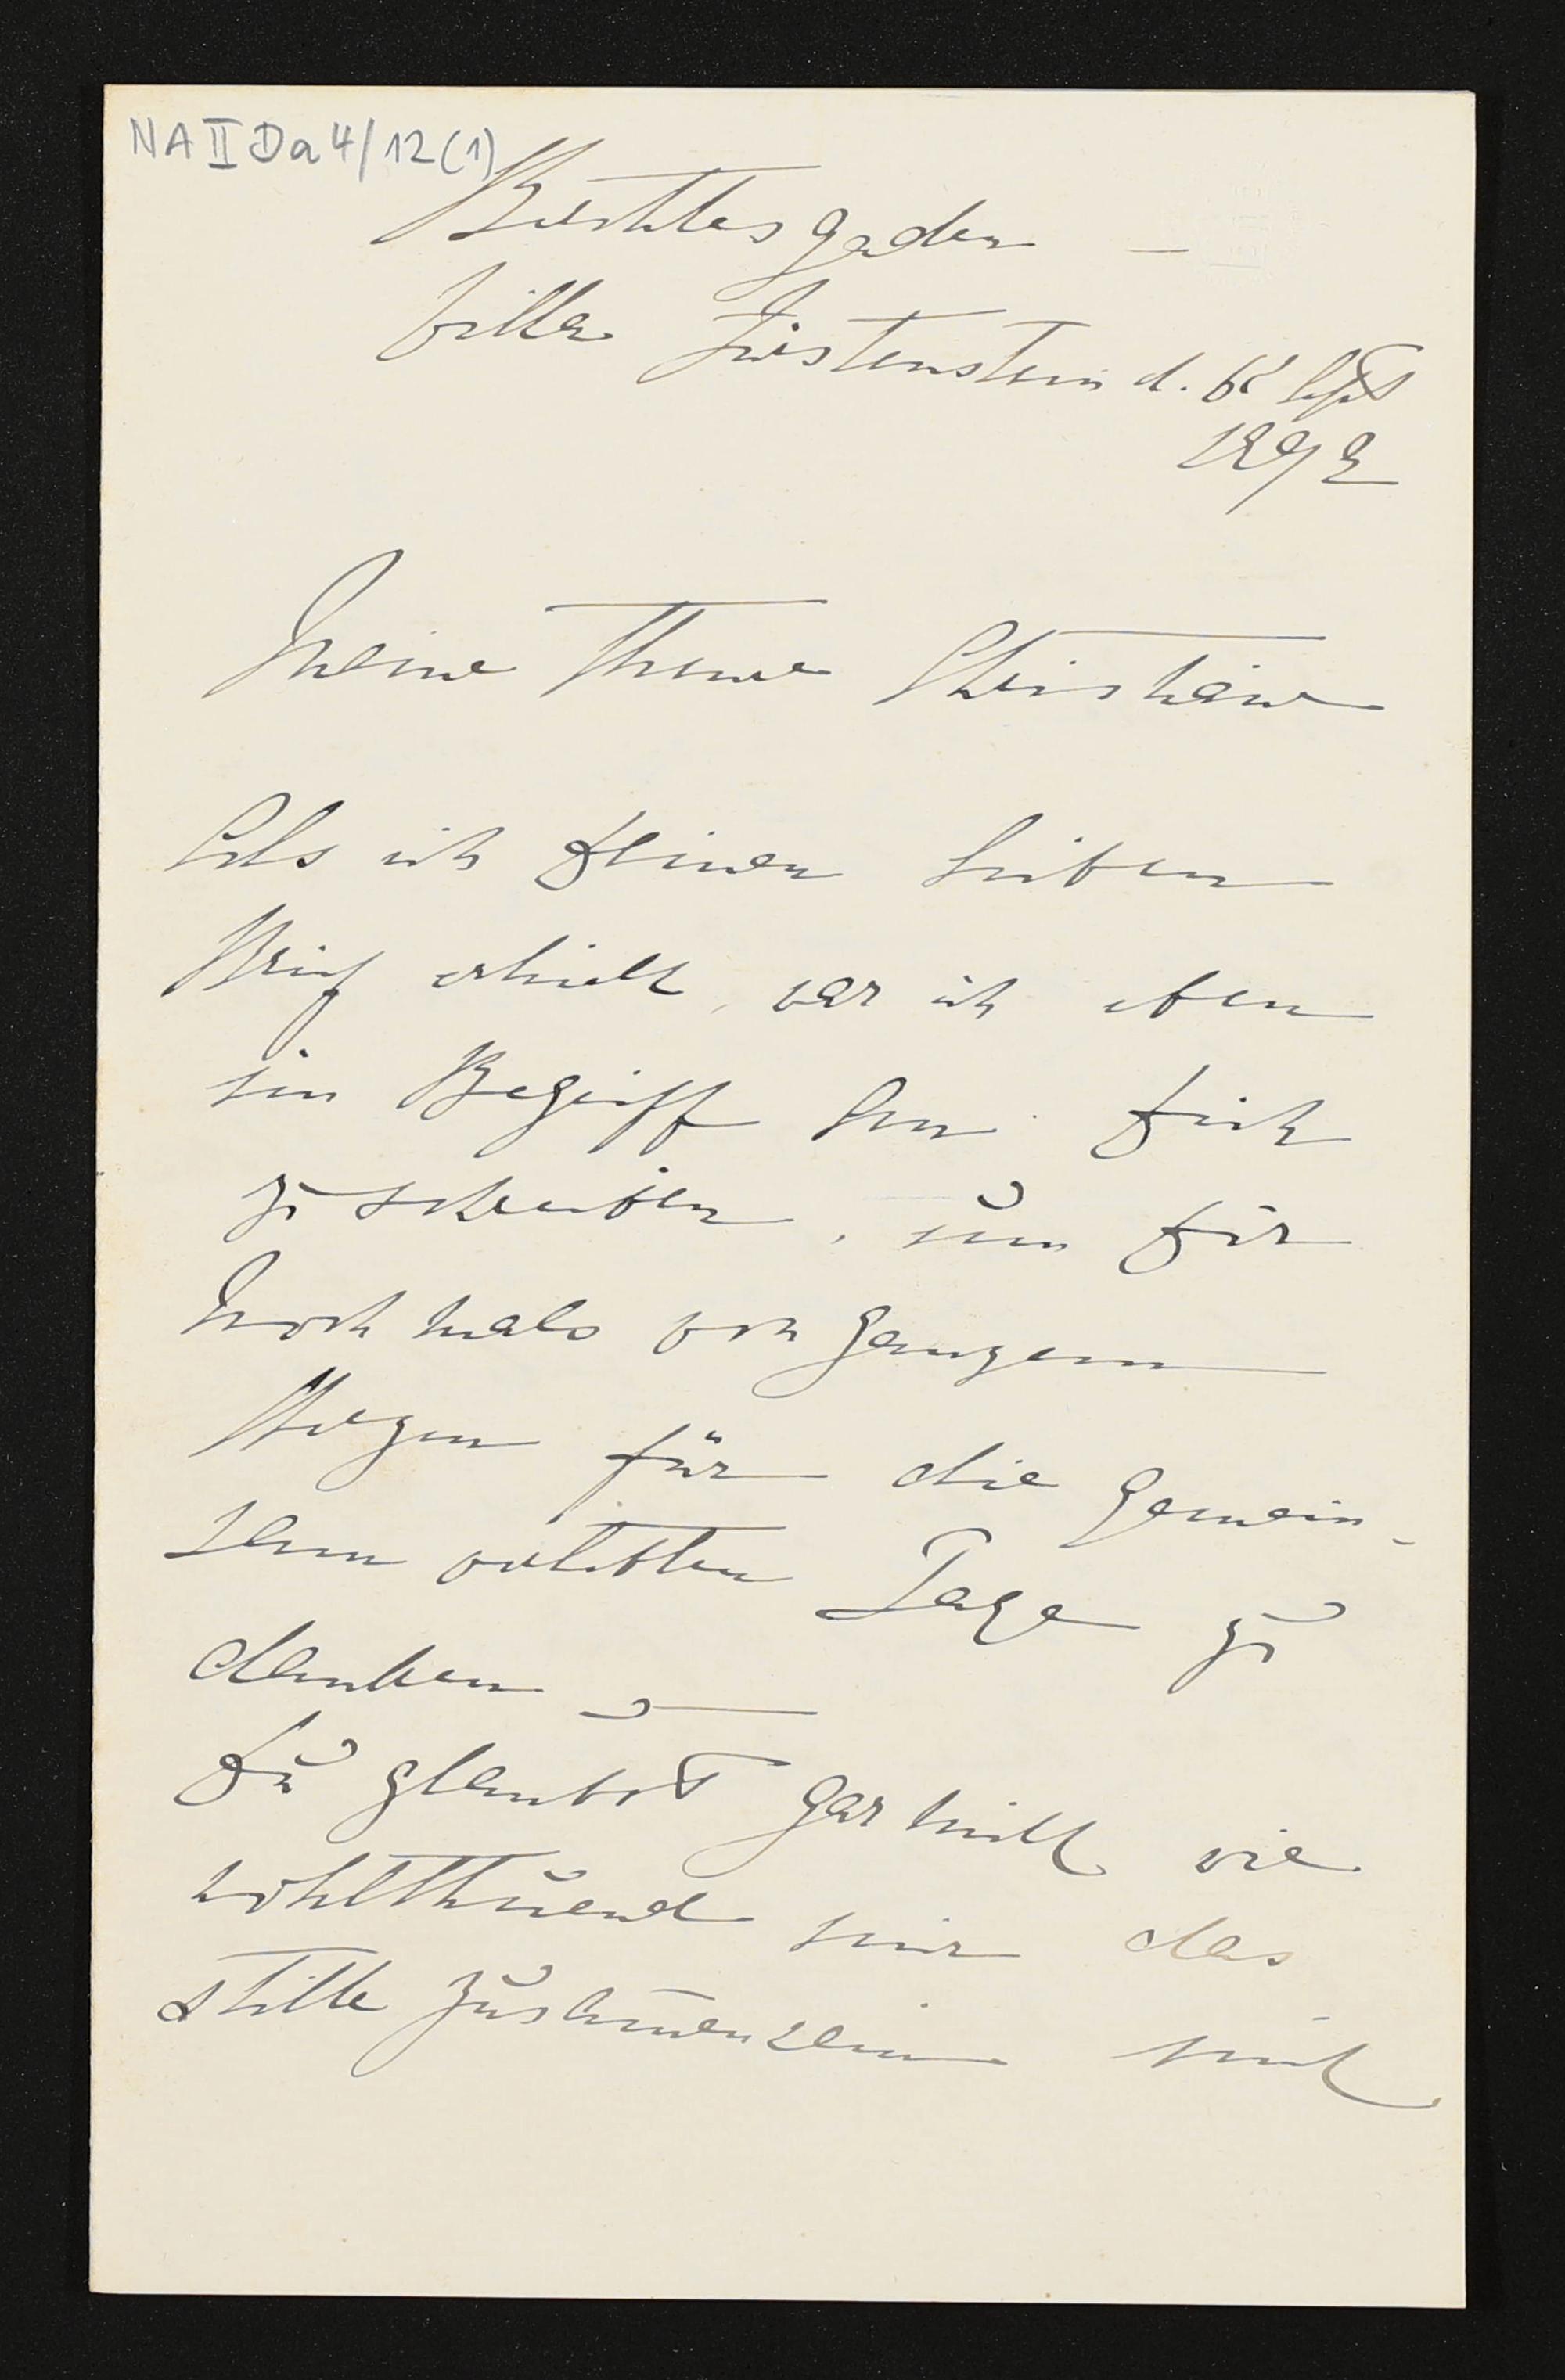 NA II Da 4/12 (1)
Berchtesgaden –
Villa Fürstenstein d. 6t Sept
1892
Meine Theure Christiane
Als ich Deinen lieben
Brief erhielt, war ich eben
im Begriff an Dich
zu schreiben, um Dir
noch mals von ganzem
Herzen für die gemein-
sam verlebten Tage zu
danken –
Du glaubst gar nicht wie
wohlthuend mir das
stille Zusam̅ensein mit